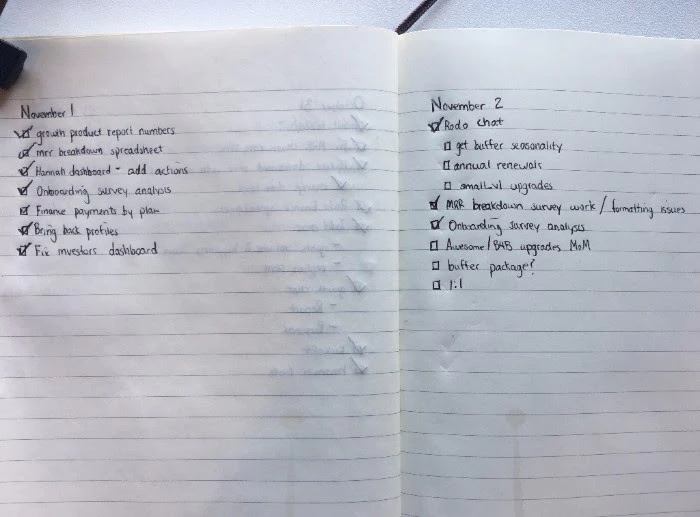 November 1
growth product report numbers
mrr breakdown spreadsheet
Hannah dashboard - add actions
Onboarding survey analysis
Finance payments by plan
Bring back profiles
Fix investors dashboard
November 2
Rodo chat
get buffer seasonality
annual renewals
small-lvl upgrades
MRR breakdown survey work / formatting issues
Onboarding survey analysis
Awesome/B4B upgrades MoM
buffer package?
1:1